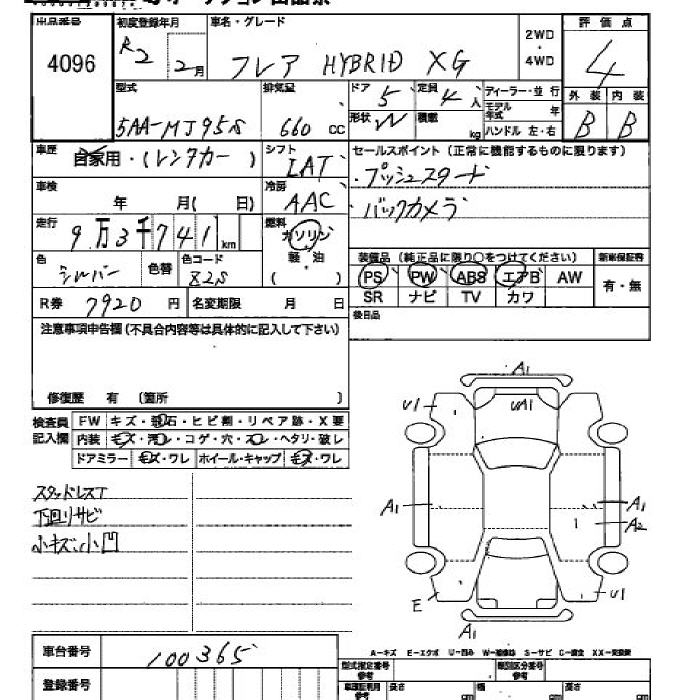 出品番号 初度登録年月 車名・グレード 2WD・4WD 評価点
4096 R2 2月 フレア HYBRID XG 4
型式 排気量 ドア 5 定員 4人 ディーラー・並行 外装 内装
5AA-MJ95S 660 cc 形状 W 積載 kg モデル年式 年 B B
ハンドル 左・右
車歴 自家用・(レンタカー) シフト LAT セールスポイント(正常に機能するものに限ります)
・プッシュスタート
車検 年 月( 日) 冷房 AAC ・バックカメラ
走行 9万3千741km 燃料 ガソリン・軽・油 ( )
色 シルバー 色替 色コード Z2S 装備品(純正品に限り○をつけてください) 新車保証書
PS PW ABS エアB AW 有・無
R券 7920円 名変期限 月 日 SR ナビ TV カワ
注意事項申告欄(不具合内容等は具体的に記入して下さい) 後日品
修復歴 有 〔箇所 〕
検査員記入欄 FW キズ・飛石・ヒビ割・リペア跡・X要
内装 キズ・汚レ・コゲ・穴・スレ・ヘタリ・破レ
ドアミラー キズ・ワレ ホイール・キャップ キズ・ワレ
スタッドレスT
下回リサビ
小キズ、小凹
A1
U1 UA1
A1 A1
A2
E U1
A1
A-キズ E-エクボ U-凹み W-補修跡 S-サビ C-腐食 XX-交換済
車台番号 100365
型式指定番号 参考 類別区分番号 参考
登録番号 長さ cm 幅 cm 高さ cm